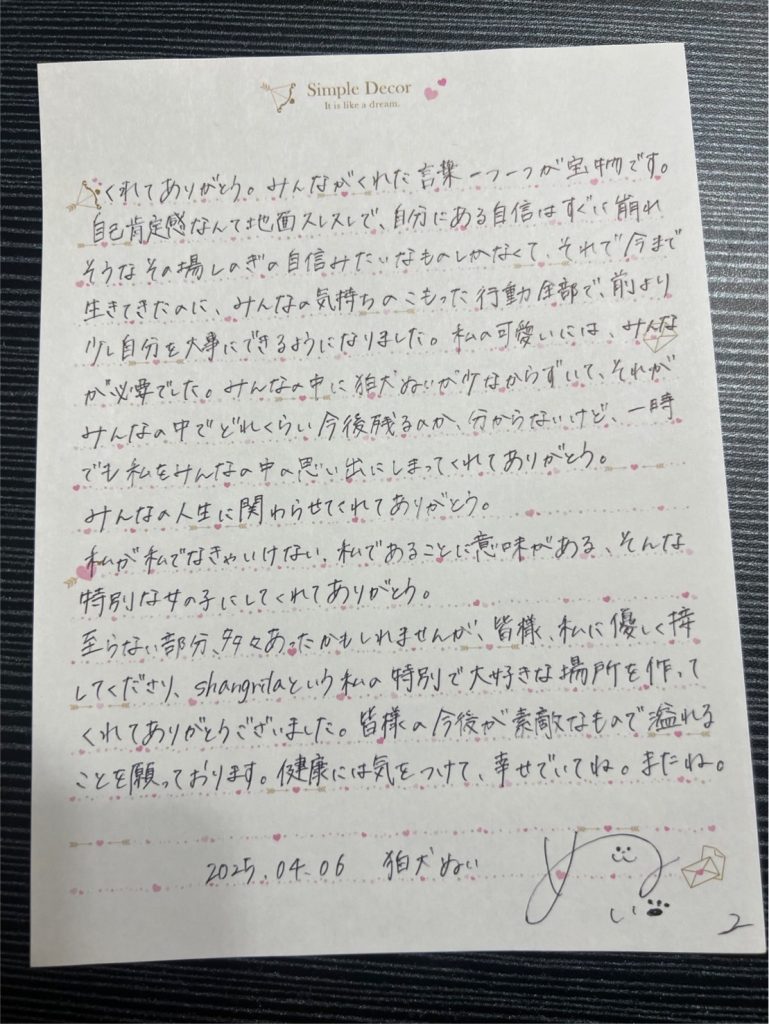 Simple Decor
It is like a dream.
くれてありがとう。みんながくれた言葉一つ一つが宝物です。
自己肯定感なんて地面スレスレで、自分にある自信はすぐに崩れ
そうなその場しのぎの自信みたいなものしかなくて、それで今まで
生きてきたのに、みんなの気持ちのこもった行動全部で、前より
少し自分を大事にできるようになりました。私の可愛いには、みんな
が必要でした。みんなの中に狛犬ぬいが少なからずいて、それが
みんなの中でどれくらい今後残るのか、分からないけど、一時
でも私をみんなの中の思い出にしまってくれてありがとう。
みんなの人生に関わらせてくれてありがとう。
私が私でなきゃいけない、私であることに意味がある、そんな
特別な女の子にしてくれてありがとう。
至らない部分、多々あったかもしれませんが、皆様、私に優しく接
してくださり、shangrilaという私の特別で大好きな場所を作って
くれてありがとうございました。皆様の今後が素敵なもので溢れる
ことを願っております。健康には気をつけて、幸せでいてね。またね。
2025.04.06 狛犬ぬい
ぬい
2